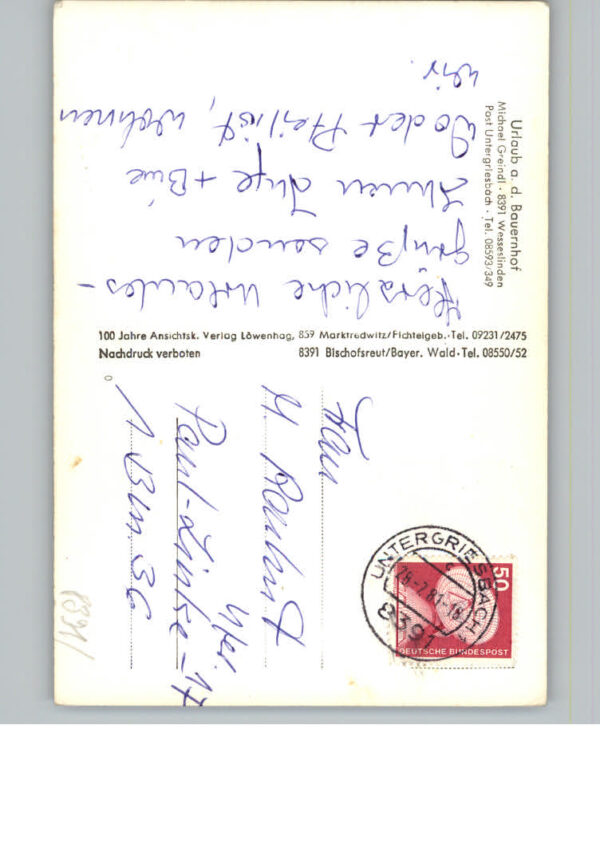 Urlaub a. d. Bauernhof
Michael Greindl · 8391 Wesseslinden
Post Untergriesbach · Tel. 08593/349
Herzliche Urlaubs-
grüße senden
Ihnen Inge +
Wo der Pfeil ist, wohnen
wir.
100 Jahre Ansichtsk. Verlag Löwenhag, 859 Marktredwitz/Fichtelgeb.·Tel. 09231/2475
Nachdruck verboten 8391 Bischofsreut/Bayer. Wald·Tel. 08550/52
Frau
Ufer
Paul-Lincke-17
1 Bln. 36
8391
UNTERGRIESBACH
28.-7.81-18
8391
50
DEUTSCHE BUNDESPOST